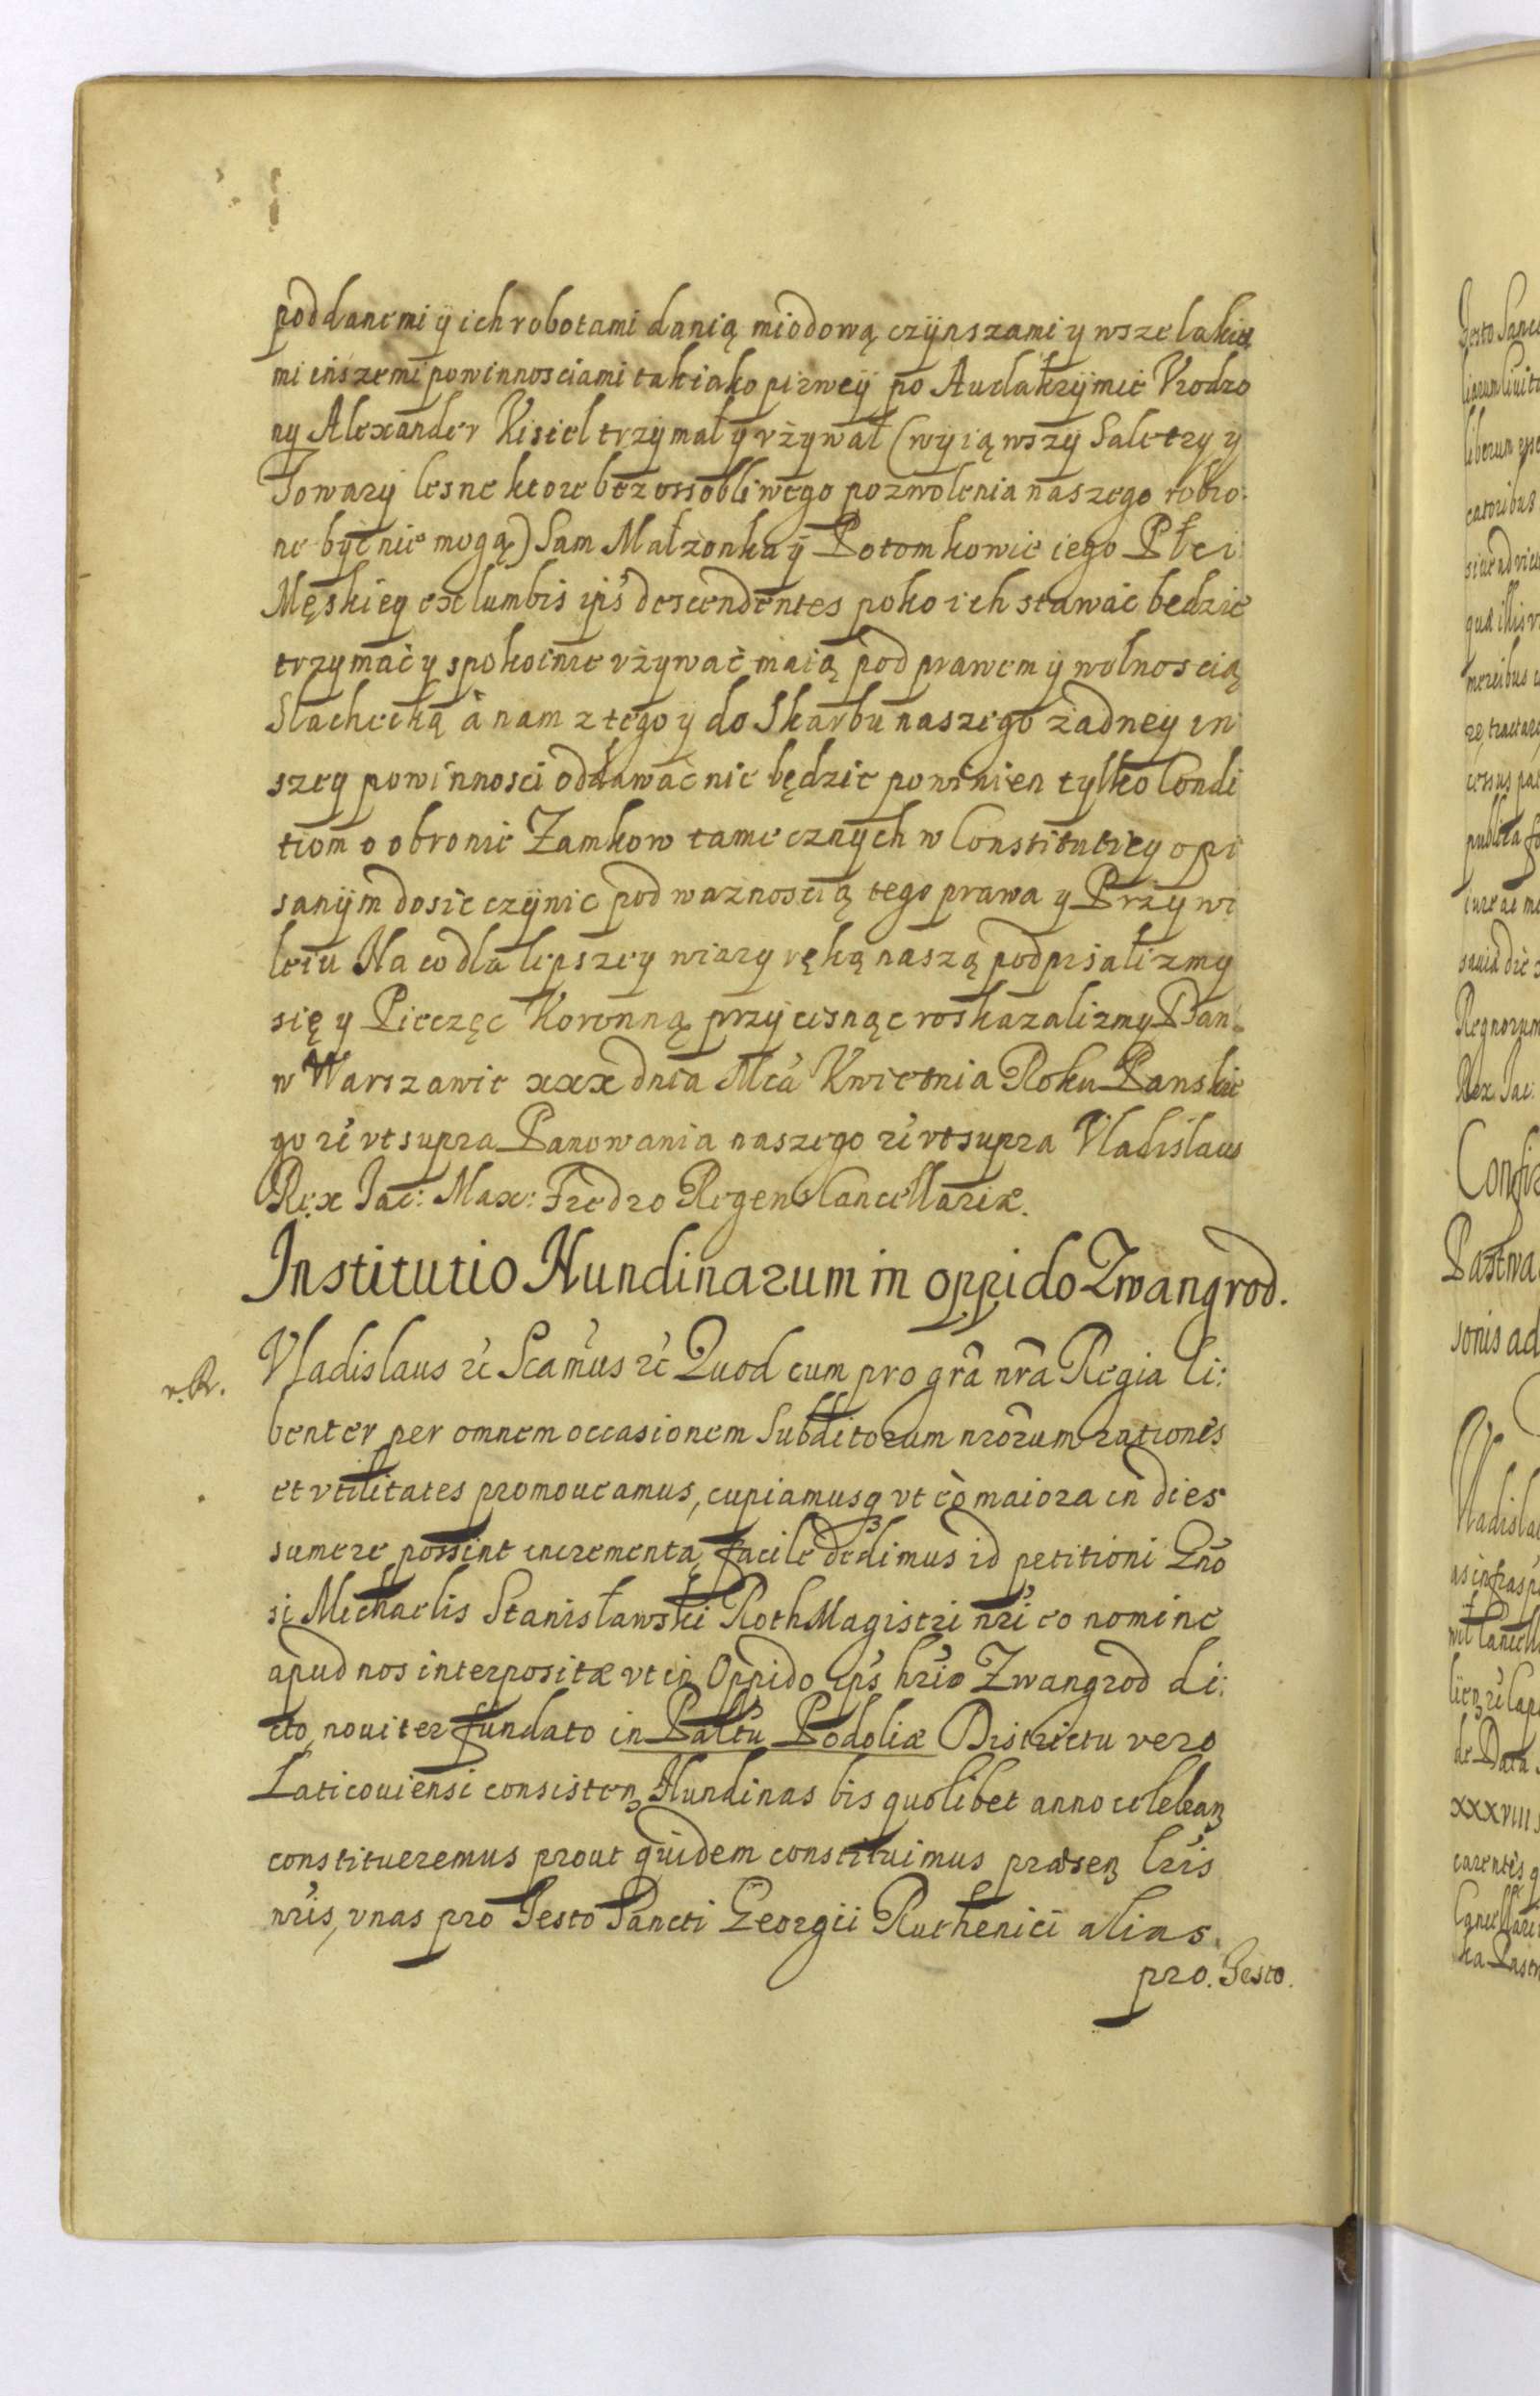 poddanemi y ich robotami danią miodową czynszami y wszelakie
mi inszemi powinnosciami tak iako pirwey po Audakrymie Vrodzo
ny Alexander Kisiel trzymał y vżywał (wyiąwszy Saletry y
Towary lesne ktore bez ossobliwego pozwolenia naszego robio
ne być nie mogą) Sam Małzonka y Potomkowie iego Płci
Męskiey ex lumbis ips descendentes poko ich stawać bedzie
trzymać y spokoinie vżywać maią pod prawem y wolnoscią
Slachecką à nam z tego y do Skarbu naszego żadney in
szey powinnosci oddawać nie będzie powinien tylko Condi
tiom o obronie Zamkow tamecznych w Constitutiey opi
sanym dosic czynic pod waznoscią tego prawa y Przywi
leiu Na co dla lepszey wiary ręką naszą podpisalizmy
się y Pieczęc Koronną przycisnąc roskazalizmy Dan.
w Warszawie xxx dnia Mca Kwietnia Roku Panskie
go zc vt supra Panowania naszego zc vt supra Vladislaus
Rex Jac: Max: Fredro Regens Cancellariæ.
Institutio Nundinarum in oppido Zwangrod.
Vladislaus zc Scamus zc Quod cum pro gra nra Regia li:
benter per omnem occasionem Subditorum nrorum rationes
et vtilitates promoueamus, cupiamusq vt eò maiora in dies
sumere possint incrementa, facile dedimus id petitioni Gno
si Michaelis Stanisławski RothMagistri nri eo nomine
apud nos interpositæ vt in Oppido ips hrio Zwangrod di:
cto, nouiter fundato in Paltu Podoliæ Districtu vero
Laticouiensi consisten Nundinas bis quolibet anno celebran
constitueremus prout quidem constituimus præsen lris
nris, vnas pro Festo Sancti Georgii Ruthenici alias
pro. Festo.